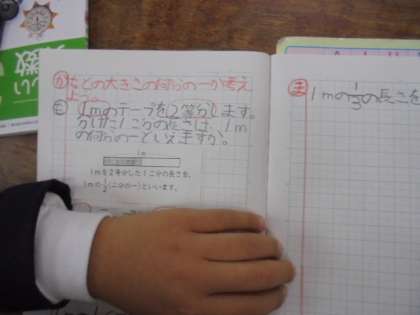 か もとの大きさの何分の一か考え
も 1mのテープを2等分します。
分した1こ分の長さは、1m
の何分の一といえますか。
1m
1mを2等分した1こ分の長さを、
1mの1/2(二分の一)といいます。
ま 1mの1/3の長さを